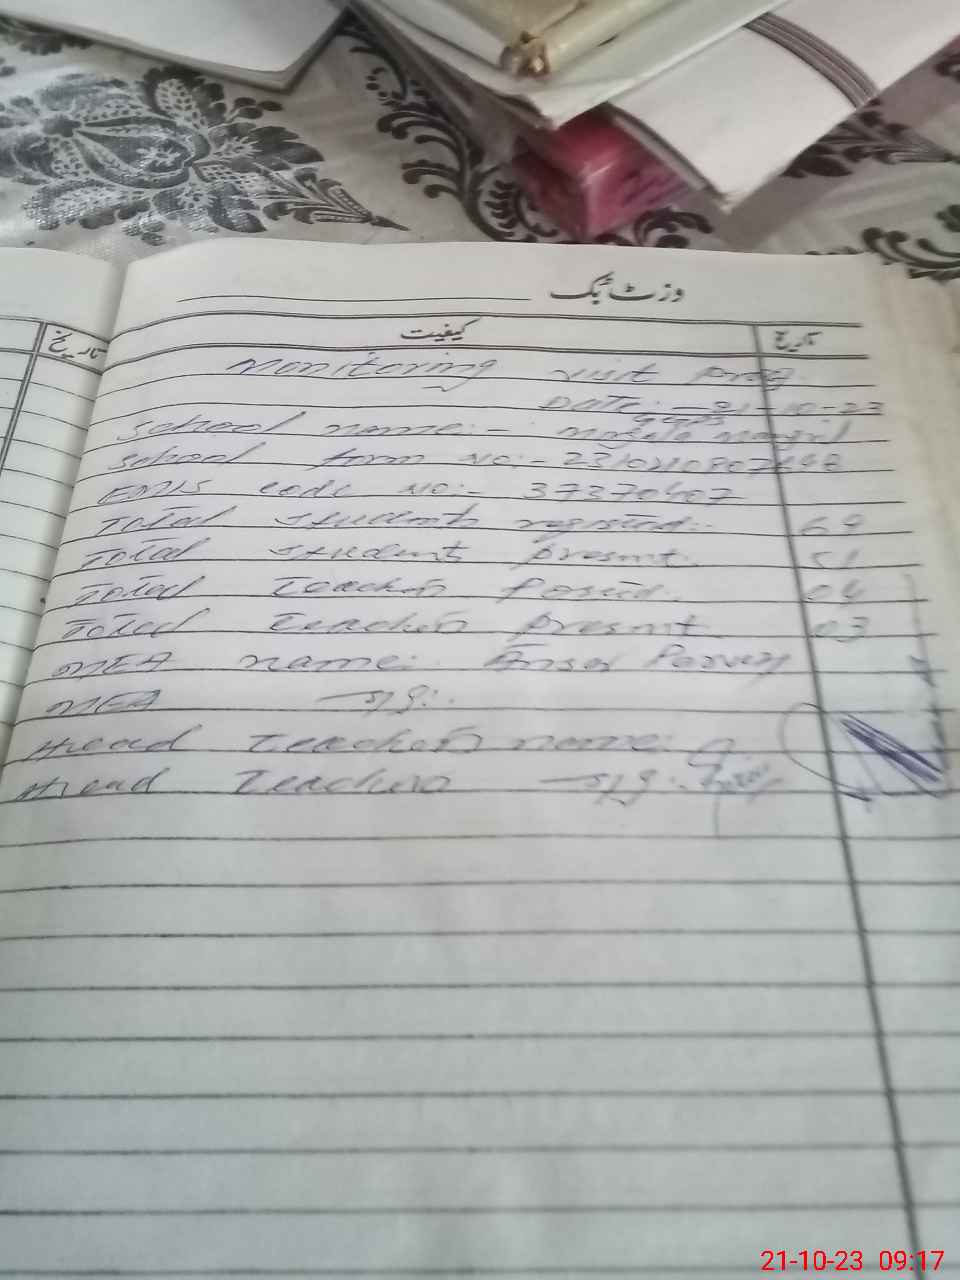 وزٹ بک
تاریخ کیفیت تاریخ
Monitoring visit prog
Date: 21-10-23
School name:-
School form No:-
EMIS code No:- 37370407
Total students :- 69
Total student present. 51
Total Teachers 04
Total Teachers present 03
MEA name:
MEA Sig:.
Head Teachers name:
Head Teachers Sig:.
21-10-23 09:17